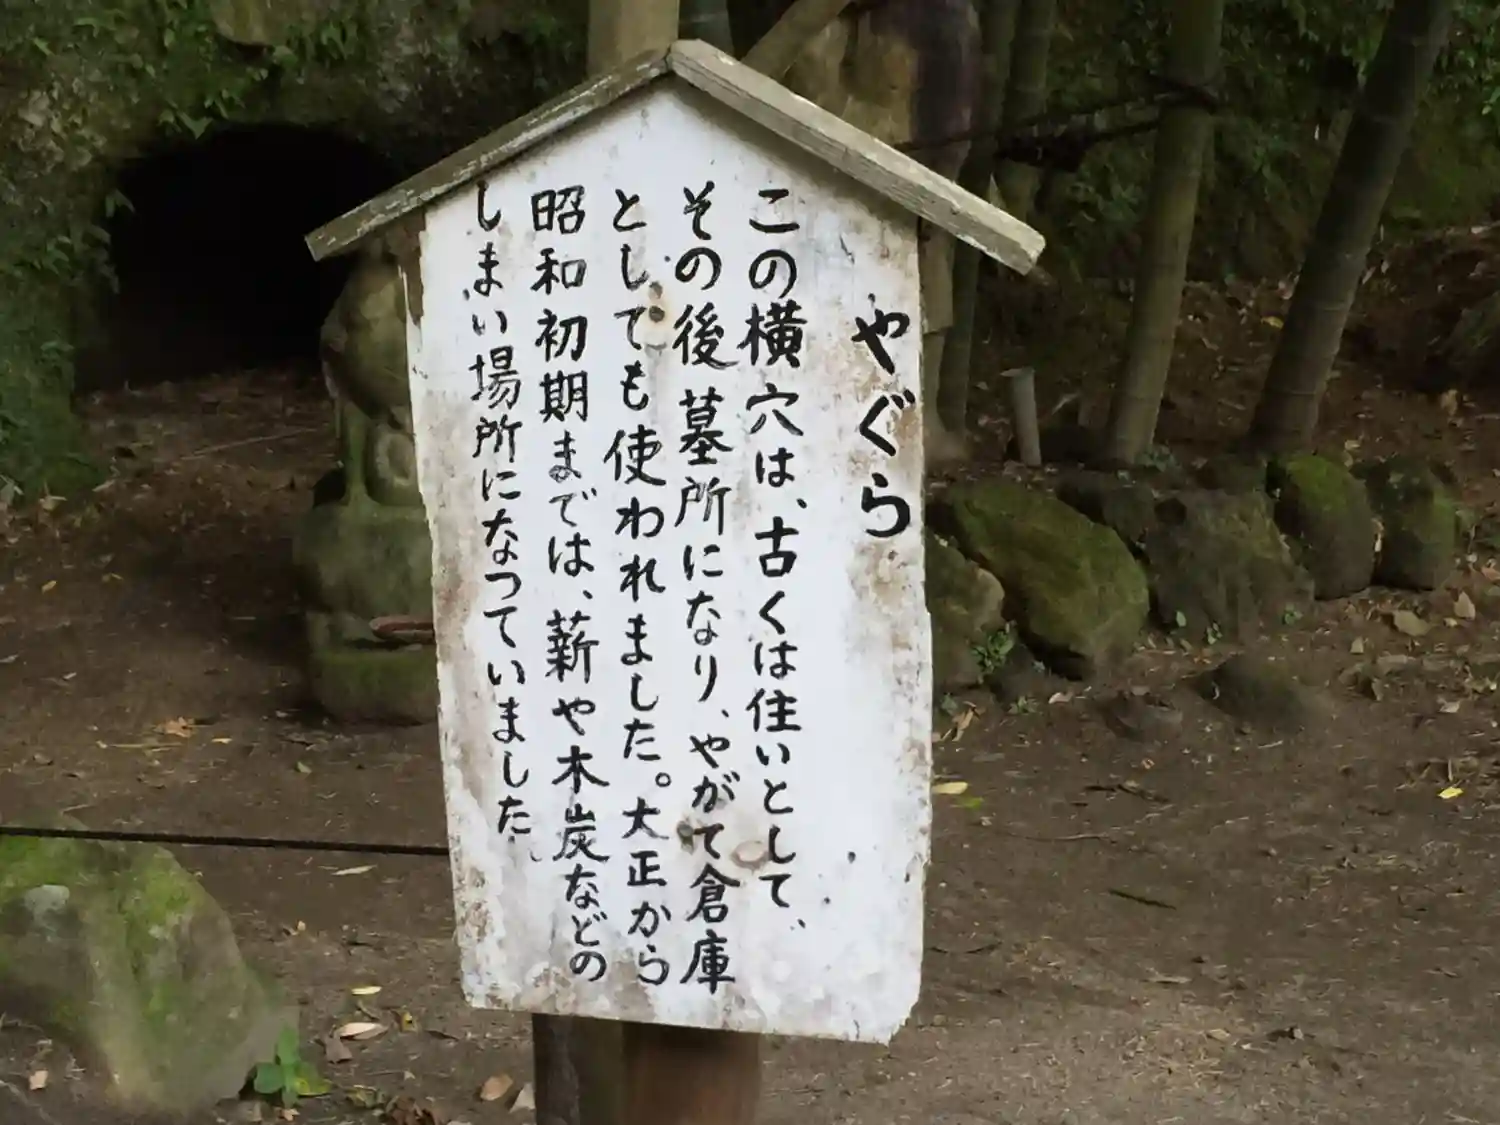 やぐら
この横穴は、古くは住いとして、
その後墓所になり、やがて倉庫
としても使われました。大正から
昭和初期までは、薪や木炭などの
しまい場所になつていました